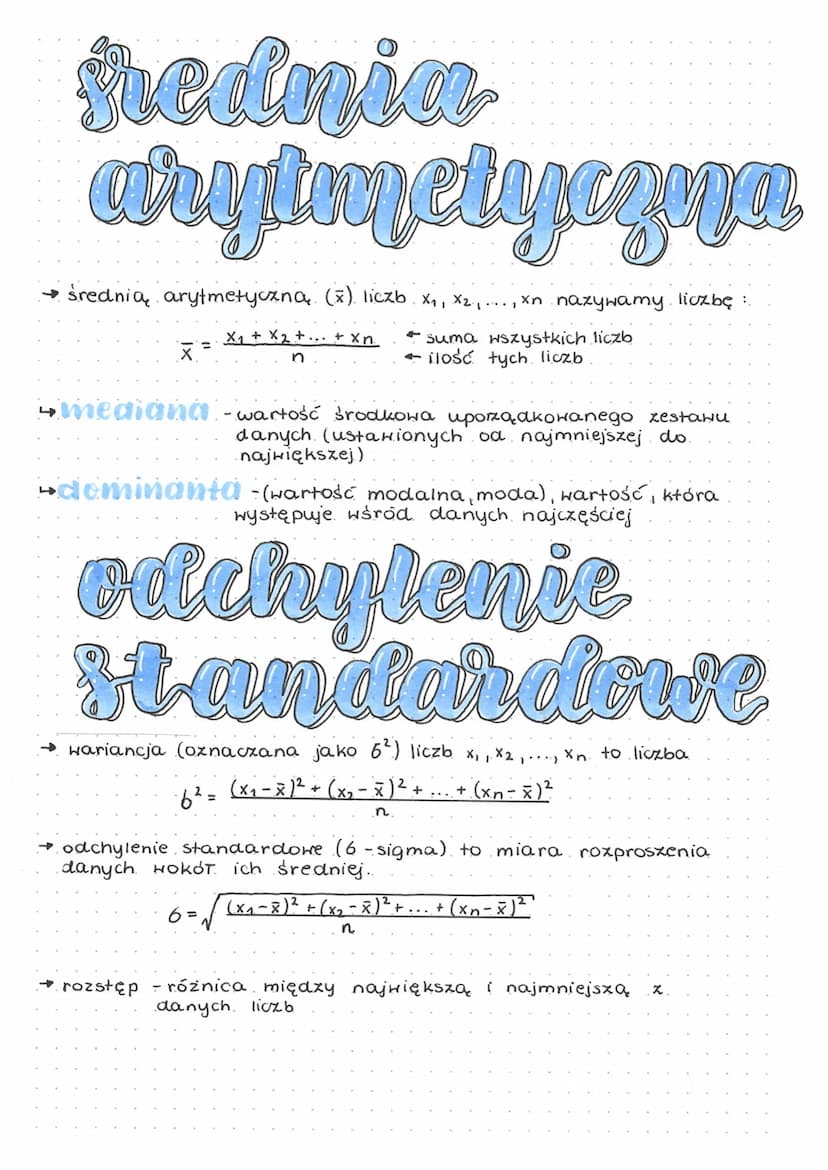 średnia
arytmetyczna
→ średnią arytmetyczną (x̄) liczb x₁, x₂, ..., xn nazywamy liczbę:
x̄ = (x₁ + x₂ + ... + xn) / n ← suma wszystkich liczb
← ilość tych liczb
↳ mediana - wartość środkowa uporządkowanego zestawu
danych (ustawionych od najmniejszej do
największej)
↳ dominanta - (wartość modalna, moda), wartość, która
występuje wśród danych najczęściej
odchylenie
standardowe
→ wariancja (oznaczana jako б²) liczb x₁, x₂, ..., xn to liczba
б² = ((x₁ - x̄)² + (x₂ - x̄)² + ... + (xn - x̄)²) / n
→ odchylenie standardowe (б - sigma) to miara rozproszenia
danych wokół ich średniej.
б = √(((x₁ - x̄)² + (x₂ - x̄)² + ... + (xn - x̄)²) / n)
→ rozstęp - różnica między największą i najmniejszą z
danych liczb